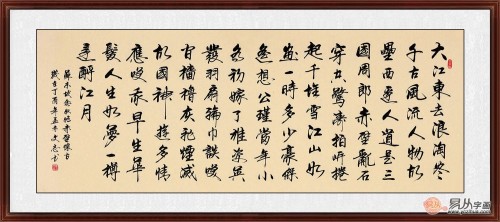 大江東去浪淘尽
千古風流人物故
壘西邊人道是三
國周郎赤壁亂石
穿空驚濤拍岸捲
起千堆雪江山如
畫一時多少豪傑
遙想公瑾當年小
喬初嫁了雄姿英
發羽扇綸巾談笑
間檣櫓灰飛煙滅
故國神遊多情
應笑我早生華
髮人生如夢一樽
還酹江月
蘇東坡念奴嬌赤壁懷古
歲在丁酉年孟冬
易从字画